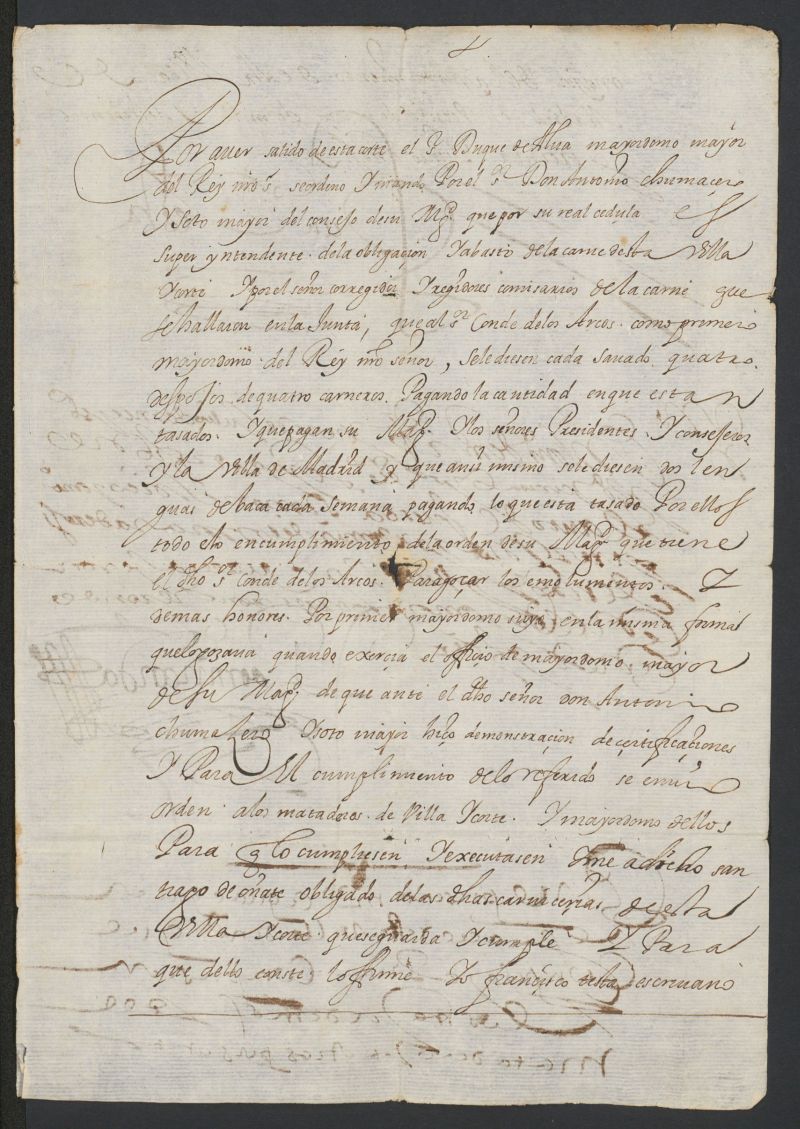 Por aver salido de esta corte el sr Duque de Alva mayordomo mayor
del Rey nro sr se ordeno Y mando Por el sr Don Antonio chumaçero
Y Soto mayor del consejo de su Magd que por su real cedula es
super yntendente de la obligaçion Y abasto de la carne desta Villa
Y corte Y por el señor corregidor Y regidores comisarios de la carne que
se hallaron en la Junta, que al sr Conde de los Arcos como primer
mayordomo del Rey nro señor, se le diesen cada savado quatro
despojos de quatro carneros Pagando la cantidad en que estan
tasados Y que pagan su Magd Y los señores Presidentes Y consejeros
y la Villa de Madrid y que ansi mismo se le diesen dos len
guas de baca cada semana pagando lo que esta tasado Por ellos
todo ello en cumplimiento de la orden de su Magd que tiene
el dho sr Conde de los Arcos Para goçar los emolumentos Y
demas honores Por primer mayordomo suyo en la misma forma
que lo gozava quando exercia el officio de mayordomo mayor
de su Magd de que ante el dho señor don Antonio
chumaçero Y soto mayor hiço demonstracion de çertificaçiones
Y Para el cumplimiento de lo referido se embio
orden a los matadores de Villa Y corte Y mayordomo dellos
Para q lo cumpliesen Y executasen a dicho san
tiago de oñate obligado de las dhas carnicerias de esta
Villa Y corte que se guarda Y cumple Y Para
que dello conste lo firme Yo francisco testa escrivano